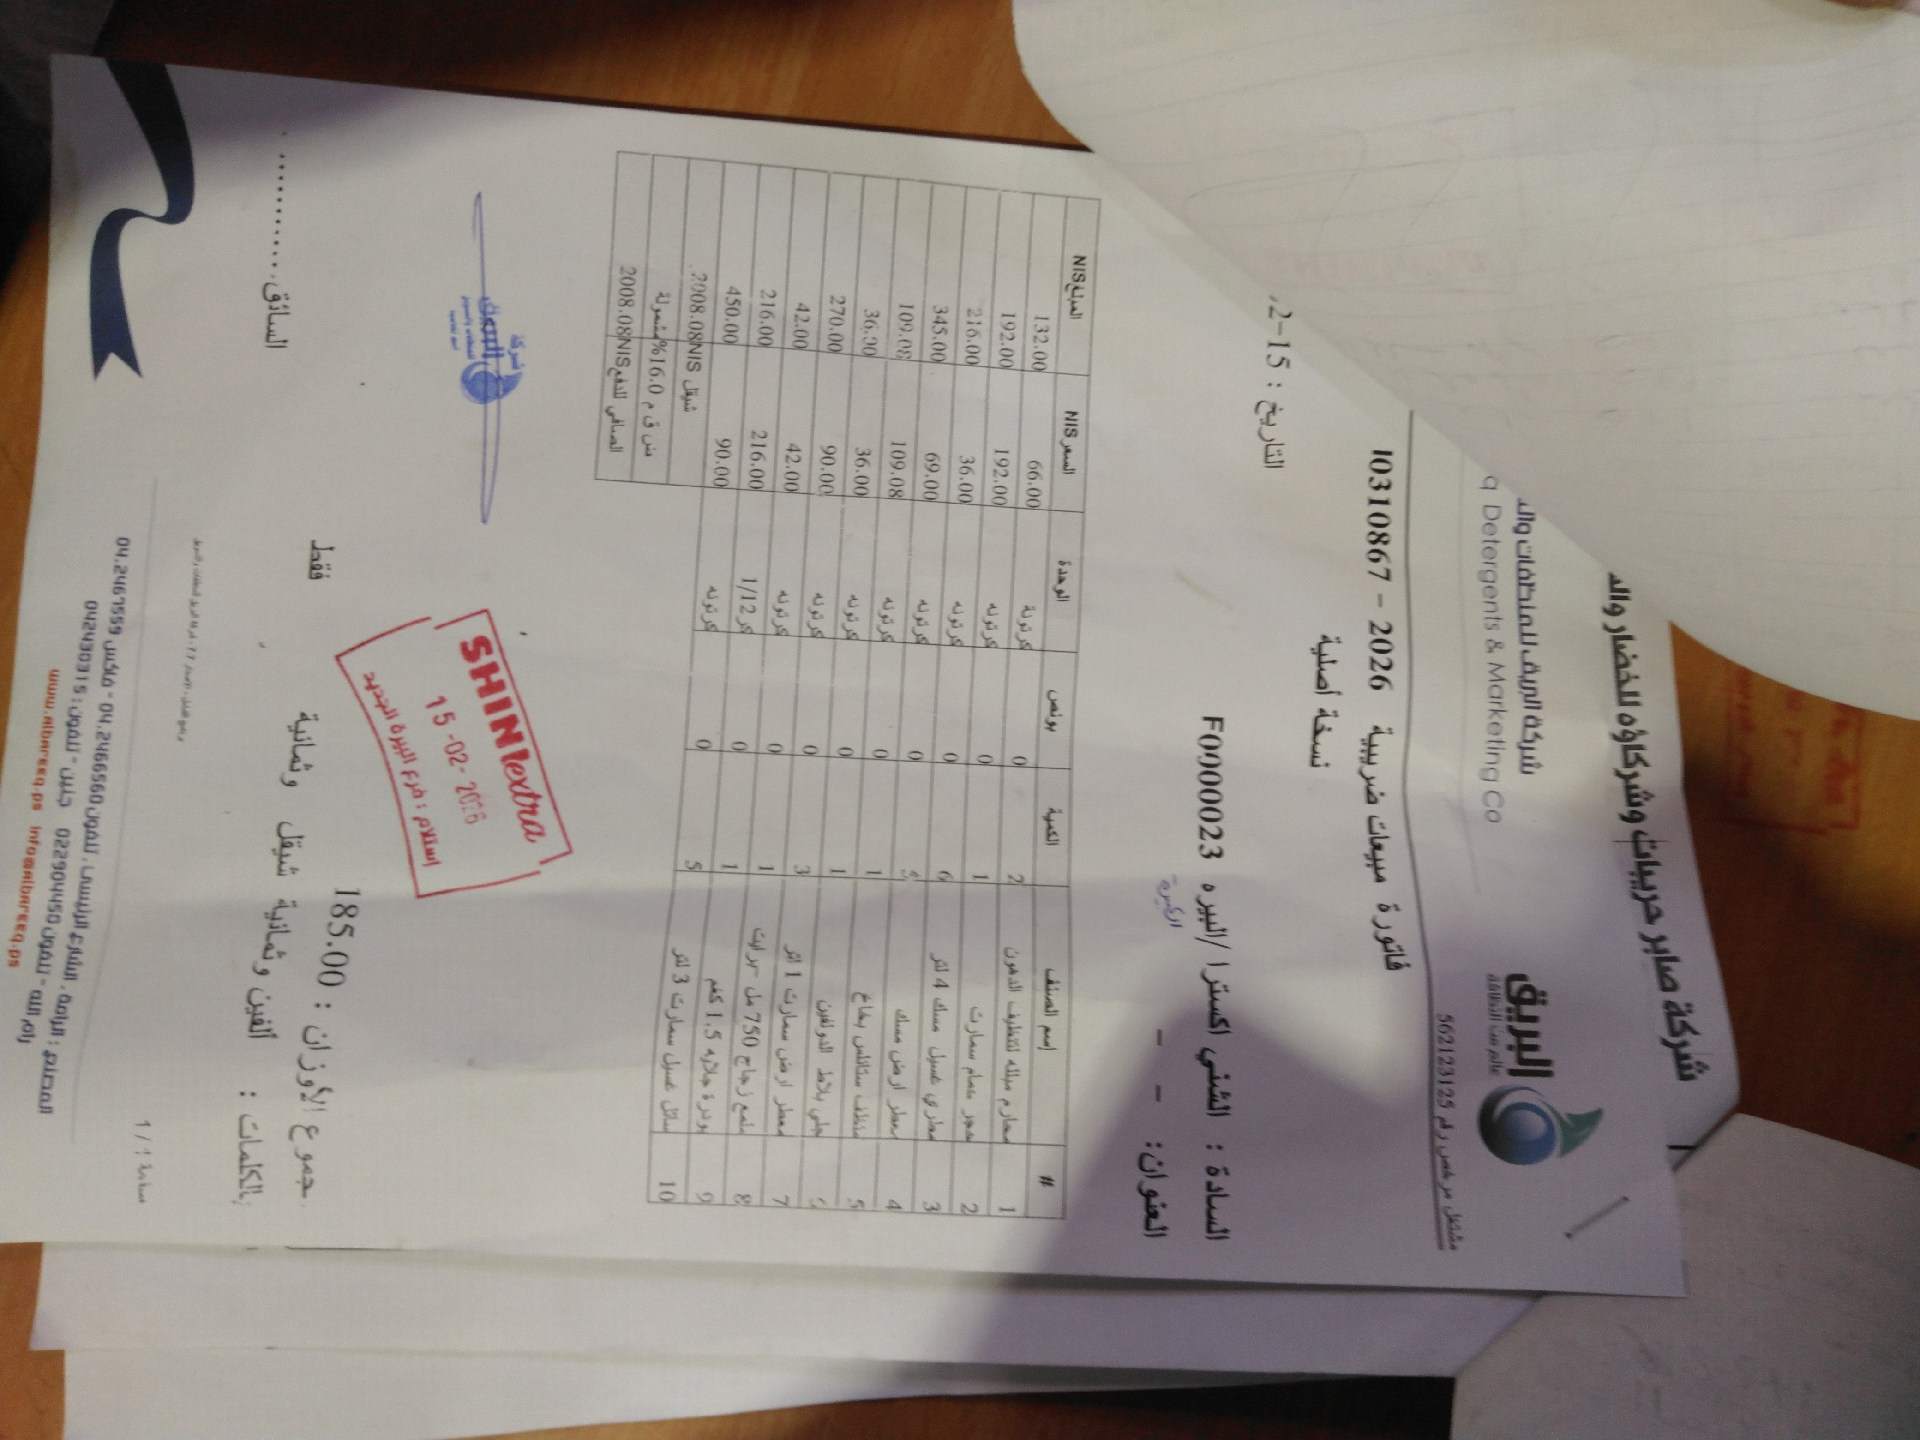 شركة صابر حريبات وشركاؤه للخضار والد
البريق
عالم من النظافة
شركة البريق للمنظفات والد
q Detergents & Marketing Co
مشتغل مرخص رقم 562123125
فاتورة مبيعات ضريبية 2026 - I0310867
نسخة أصلية
التاريخ : 15-2
السادة : الشني اكسترا /البيره F0900023
العنوان: - -
# إسم الصنف الكمية بونص الوحدة السعر NIS المبلغ NIS
1 محارم مبلله لتنظيف الدهون 2 0 كرتونة 66.00 132.00
2 معجر حمام سمارت 1 0 كرتونه 192.00 192.00
3 معاري غسيل مسك 4 لتر 6 0 كرتونه 36.00 216.00
4 معطر ارض مسك 5 0 كرتونه 69.00 345.00
5 منظف ستانلس بخاخ 1 0 كرتونه 109.08 109.08
جلي بلاط الدولفين 1 0 كرتونه 36.00 36.00
7 معطر ارض سمارت 1 لتر 3 0 كرتونه 90.00 270.00
8 ملمع زجاج 750 مل - برايت 1 0 كرتونه 42.00 42.00
9 بودرة جلاية 1.5 كغم 1 0 كر 1/12 216.00 216.00
10 سائل غسيل سمارت 3 لتر 5 0 كرتونه 90.00 450.00
شيقل NIS 2008.08
ض ق م 16.0% مشمولة
الصافي للدفع NIS 2008.08
شركة
البريق
SHINIextra
15-02-2026
إستلام : فرع البيرة الجديد
مجموع الأوزان : 185.00
بالكلمات : ألفين وثمانية شيقل وثمانية فقط
السائق
صفحة 1 / 1
المصنع : الرامة ، الشارع الرئيسي ، تلفون 04.2466560 - فاكس 04.2467559
رام الله - تلفون 022904450 جنين - تلفون : 042430315
www.albareeq.ps info@albareeq.ps